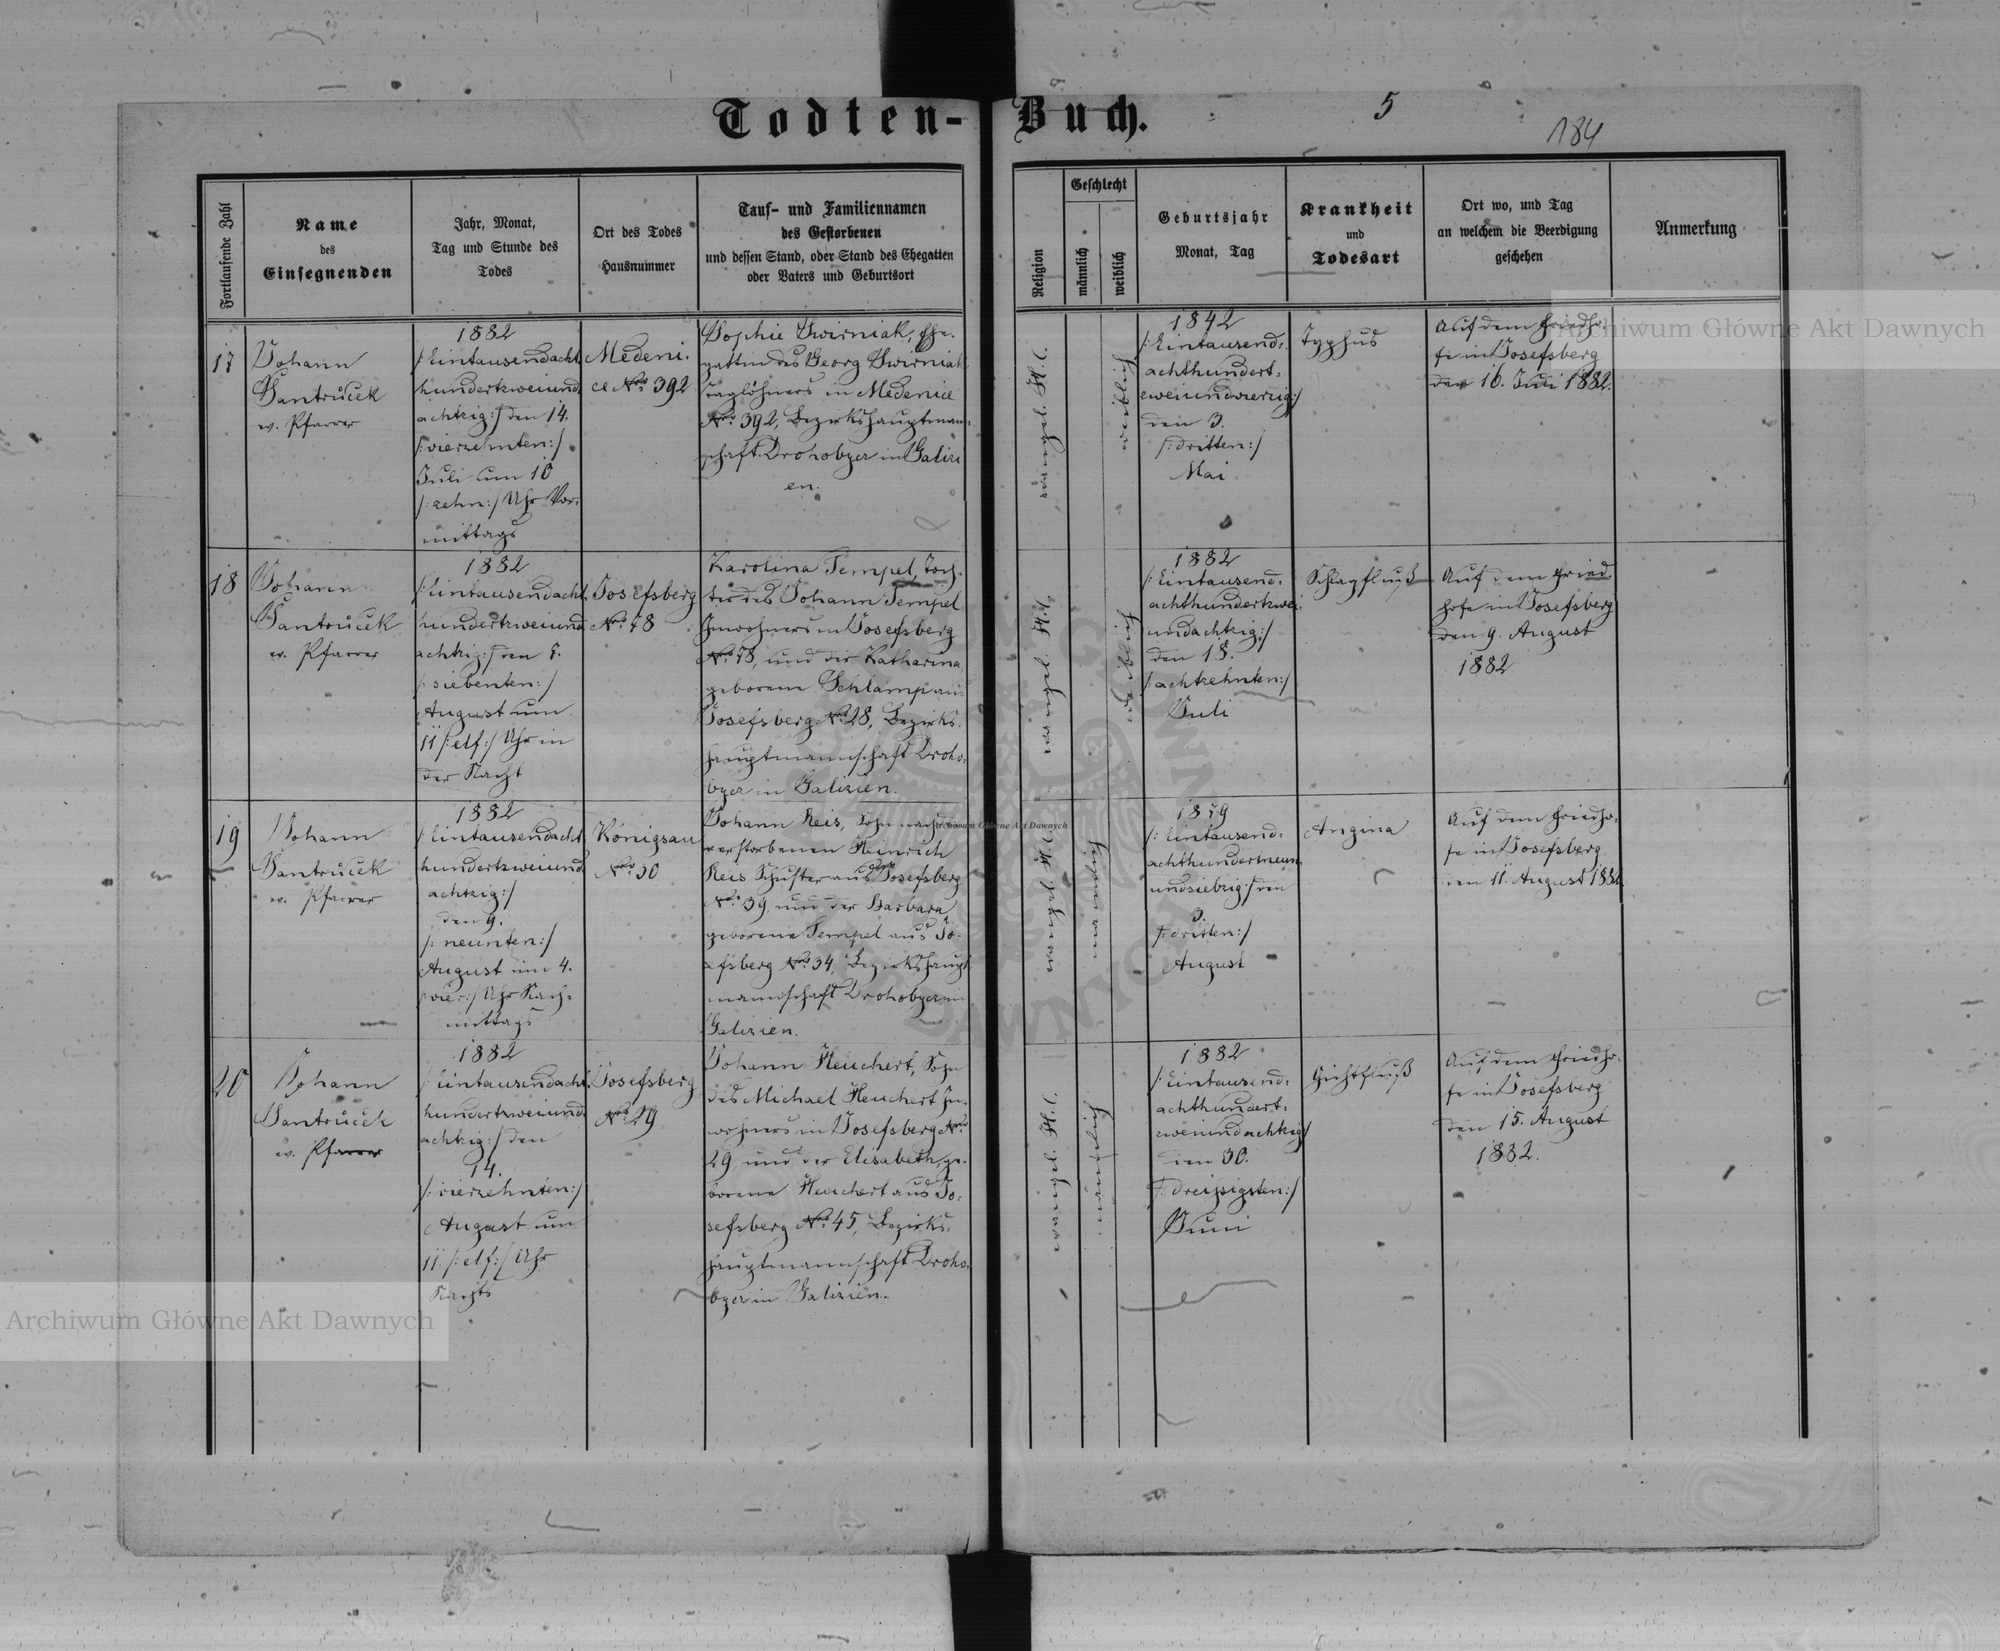 Todten-Buch.
5
184
Fortlaufende Zahl
Name
des
Einsegnenden
Jahr, Monat,
Tag und Stunde des
Todes
Ort des Todes
Hausnummer
Tauf- und Familiennamen
des Gestorbenen
und dessen Stand, oder Stand des Ehegatten
oder Vaters und Geburtsort
Religion
Geschlecht
männlich
weiblich
Geburtsjahr
Monat, Tag
Krankheit
und
Todesart
Ort wo, und Tag
an welchem die Beerdigung
geschehen
Anmerkung
17
Johann
Santrůček
ev. Pfarrer
1882
/:Eintausendacht
hundertzweiund
achtzig:/ den 14.
/:vierzehnten:/
Juli um 10
/:zehn:/ Uhr Vor-
mittags
Medeni-
ce No. 392
Sophie Swirniak, Ehe-
gattin des Georg Swirniak
Taglöhners in Medenice
No. 392, Bezirkshauptman-
schaft Drohobycz in Galizi
en.
1842
/:Eintausend-
achthundert-
zweiundvierzig:/
den 3.
/:dritten:/
Mai
Typhus
Auf dem Friedho-
fe in Josefsberg
den 16. Juli 1882.
18
Johann
Santrůček
ev. Pfarrer
1882
/:Eintausendacht
hundertzweiund
achtzig:/ den 7.
/:siebenten:/
August um
11 /:elf:/ Uhr in
der Nacht
Josefsberg
No. 78
Karolina Tempel, Toch-
ter des Johann Tempel
Inwohners in Josefsberg
No. 78, und der Katharina
geborene Schlamp aus
Josefsberg No. 28, Bezirks-
hauptmannschaft Droho-
bycz in Galizien.
1882
/:Eintausend-
achthundertzwei-
undachtzig:/
den 18.
/:achtzehnten:/
Juli
Schlagfluß
Auf dem Fried
hofe in Josefsberg
den 9. August
1882
19
Johann
Santrůček
ev. Pfarrer
1882
/:Eintausendacht
hundertzweiund
achtzig:/
den 9.
/:neunten:/
August um 4.
/:vier:/ Uhr Nach-
mittags
Königsau
No. 30
Johann Reis, Sohn nach
verstorbenen Heinrich
Reis Schuster aus Josefsberg
No. 39 und der Barbara
geborene Tempel aus Jo-
sefsberg No. 34, Bezirkshaupt
mannschaft Drohobycz in
Galizien.
1879
/:Eintausend-
achthundertneun
undsiebzig:/ den
3.
/:dritten:/
August
Angina
Auf dem Friedho-
fe in Josefsberg
den 11. August 1882
20
Johann
Santrůček
ev. Pfarrer
1882
/:Eintausendacht
hundertzweiund
achtzig:/ den
14.
/:vierzehnten:/
August um
11 /:elf:/ Uhr
Nachts
Josefsberg
No. 29
Johann Heuchert, Sohn
des Michael Heuchert In-
wohners in Josefsberg No.
29 und der Elisabeth, ge-
borene Heuchert aus Jo-
sefsberg No. 45, Bezirks-
hauptmannschaft Droho-
bycz in Galizien.
1882
/:Eintausend-
achthundert-
zweiundachtzig/
den 30.
/:dreißigsten:/
Juni
Gichtfluß
Auf dem Friedho-
fe in Josefsberg
den 15. August
1882.
Archiwum Główne Akt Dawnych
Archiwum Główne Akt Dawnych
Archiwum Główne Akt Dawnych